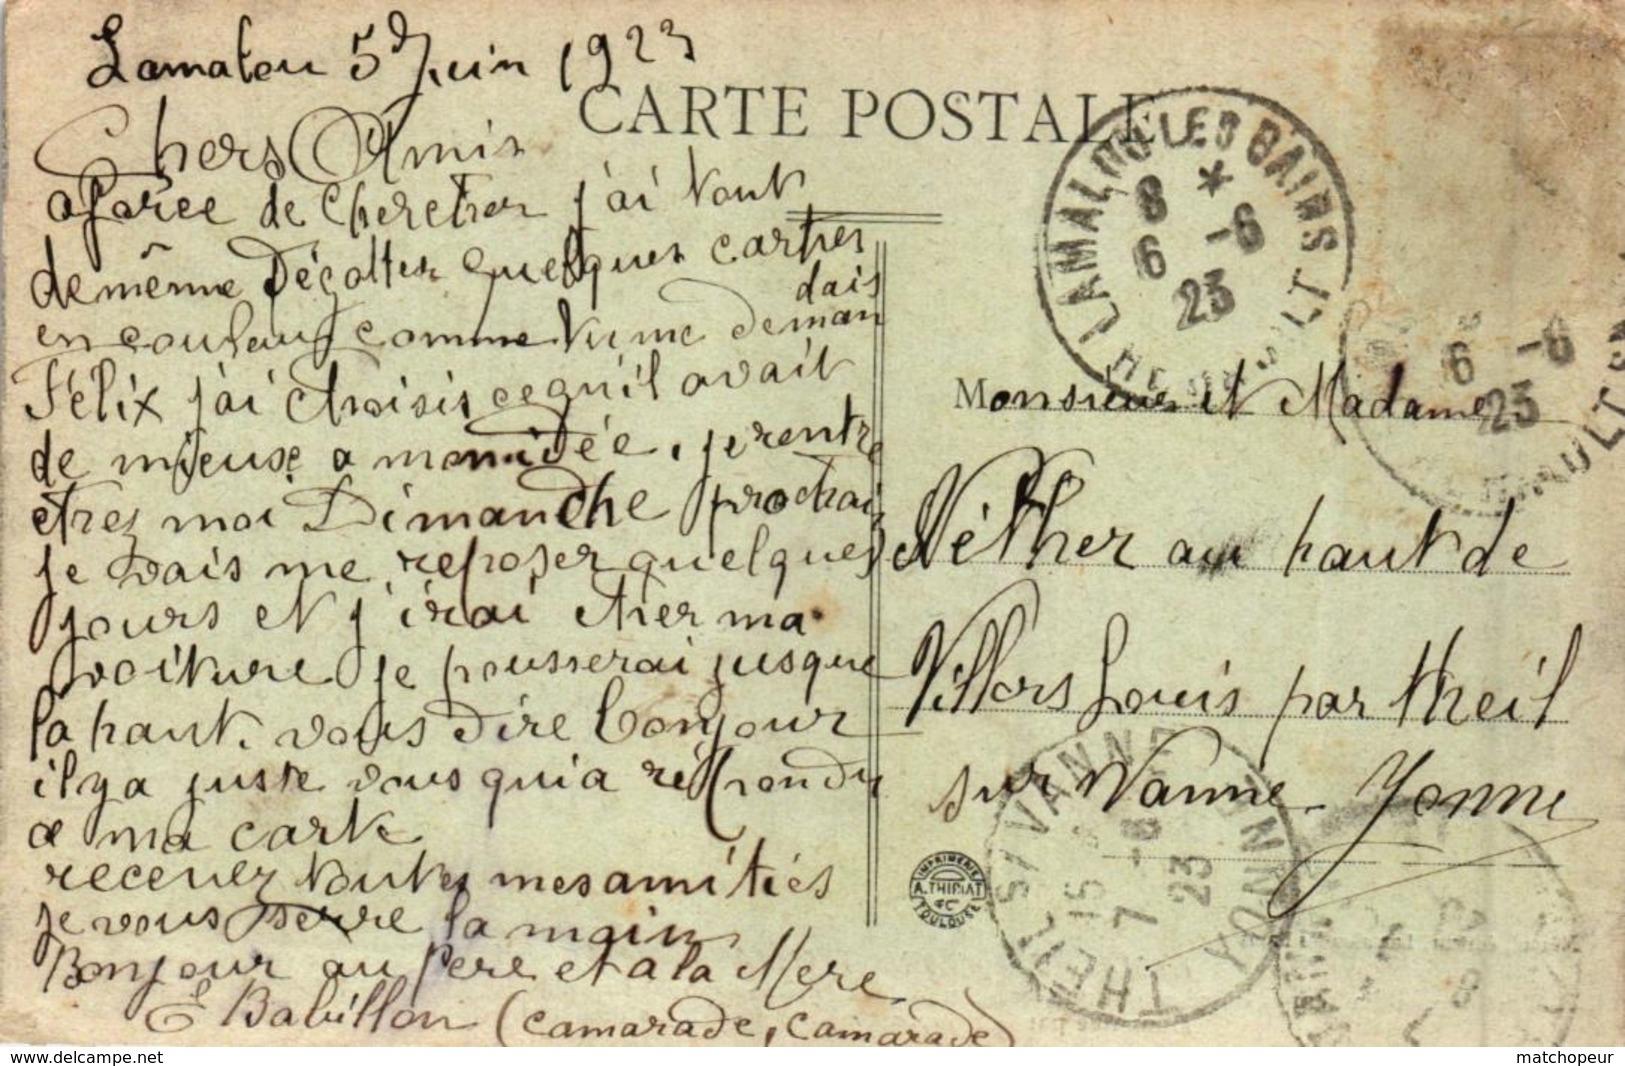 Lamalou 5 Juin 1923
CARTE POSTALE
Chers Amis
a force de chercther j'ai tout
de même Dégolter quelques cartres
en couleur comme tu me deman
dais
Félix j'ai Choisis ce qu'il avait
de mieuse a mon idée, je rentre
chez moi Dimanche prochain
je vais me reposer quelques
jours et j'irai cherher ma
voiture je pousserai jusque
la haut. vous dire bonjour
il y a juste vous qui a répondu
a ma carte
recever toutes mes amitiés
je vous serre la main
Bonjour au Pere et a la Mere
E Babillon (camarade, camarade)
Monsieur et Madame
Néther au haut de
Villers Louis par theil
sur Vanne Yonne
LAMALOU LES BAINS
HERAULT
8 * -6
6 23
6 -6
23
HERAULT
THEIL S/VANNE YONNE
15 7 -6 23
IMPRIMERIE
A. THIRIAT
& Cie
TOULOUSE
www.delcampe.net
matchopeur